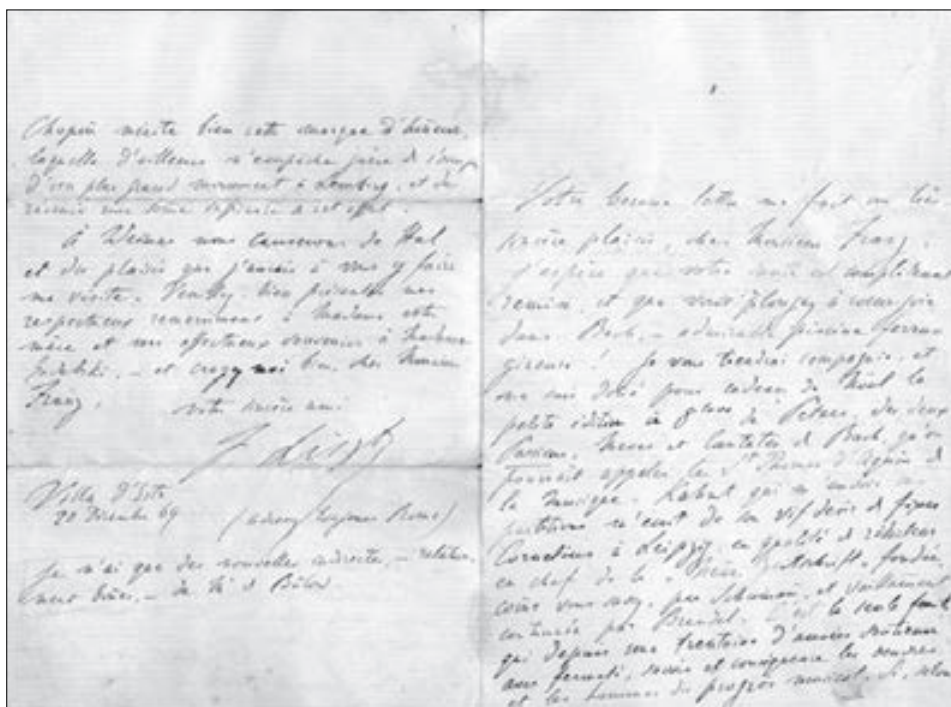 Chopin mérite bien cette marque d'honneur,
laquelle d'ailleurs n'empêche guère de
d'un plus grand monument à et de
réunir une somme suffisante à cet effet.
À Weimar nous causerons de Hal
et du plaisir que j'aurais à vous y faire
ma visite. Veuillez bien présenter mes
respectueux à Madame votre
mère et mes affectueux à Madame
– et croyez moi bien, cher Monsieur
Franz,
votre sincère ami
F. Liszt
Villa d'Este
20 Décembre 69 (toujours Rome)
Je n'ai que des nouvelles indirectes, – relative-
ment bonnes, – de H. d. Bülow.
Votre bonne lettre me fait un très
sincère plaisir, cher Monsieur Franz.
J'espère que votre santé est complètement
remise, et que vous plongez à cœur joie
dans Bach, – admirable piscine ferru-
gineuse! Je vous tiendrai compagnie, et
me suis pour cadeau de Noël la
petite édition in 8vo de Peters, des deux
Passions, Messes et Cantates de Bach, qu'on
pourrait appeler le St Thomas d'Aquin de
la musique. Kahnt qui m'
partitions m'écrit de son vif désir de fixer
Cornelius à Leipzig, en qualité de rédacteur
en chef de la Zeitschrift, fondée
comme vous savez, par Schumann, et vaillamment
continuée par Brendel. C'est la seule
qui depuis une trentaine d'années soutienne
avec fermeté, et conséquence les œuvres
et les hommes du progrès musical. Si, selon